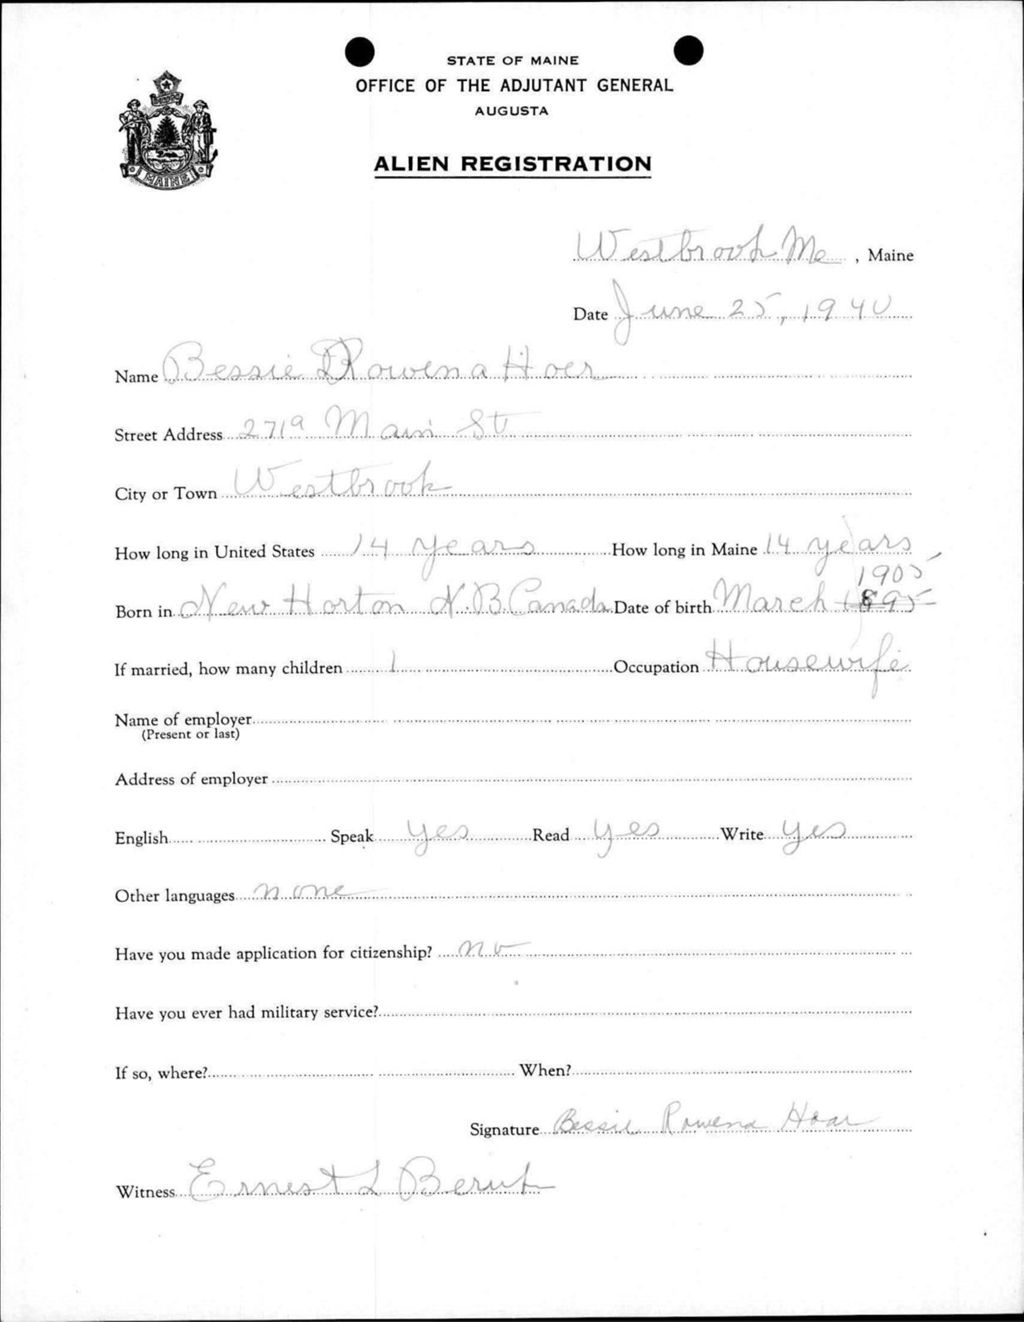 STATE OF MAINE
OFFICE OF THE ADJUTANT GENERAL
AUGUSTA
ALIEN REGISTRATION
MAINE
Westbrook Me, Maine
Date June 25, 1940
Name Bessie Rowena Hoer
Street Address 271a Main St
City or Town Westbrook
How long in United States 14 years How long in Maine 14 years
1905
Born in New Horton N.B. Canada Date of birth March 1895
If married, how many children 1 Occupation Housewife
Name of employer
(Present or last)
Address of employer
English Speak yes Read yes Write yes
Other languages none
Have you made application for citizenship? no
Have you ever had military service?
If so, where? When?
Signature Bessie Rowena Hoar
Witness Ernest L